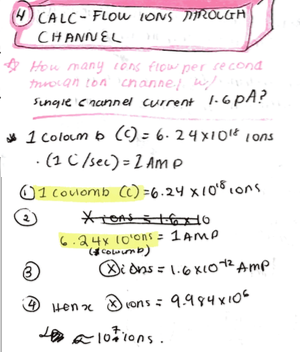 ④ CALC - FLOW IONS THROUGH
CHANNEL
☆ How many ions flow per second
through ion channel w/
single channel current 1.6pA?
* 1 Coloumb (C) = 6.24x10¹⁸ ions
· (1 C/sec) = 1 AMP
① 1 Coulomb (C) = 6.24 x 10¹⁸ ions
②
6.24x 10 ions = 1 AMP
③ ⓧ ions = 1.6x10⁻¹² AMP
④ Hence ⓧ ions = 9.984x10⁶
≈ 10⁷ ions.